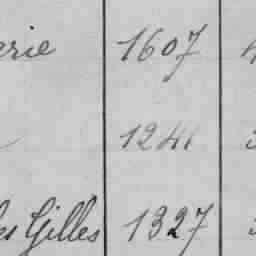 erie 1607 4
1241
es Gilles 1327